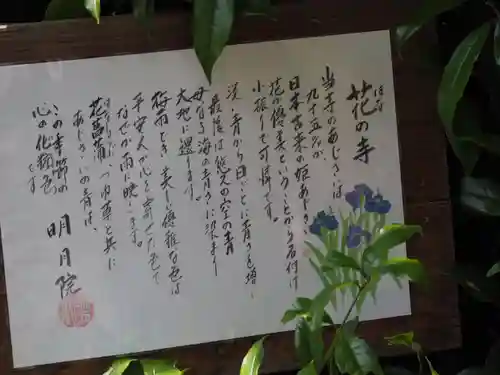 花の寺
はな
当寺のあじさいは
九十五%が
日本古来の姫あじさい
花の優美ということから名付け
小振りで可憐です。
淡い青から日ごとに青さを増し
最後は悠久の空の青
母なる海の青さに染まり
大地に還ります。
梅雨どき 美しく優雅な色は
平安人が心を寄せた色で
なぜか雨に映えます。
花菖蒲
はなしょうぶ
あじさいの青は、
この季節の
心の化顔色です
明月院